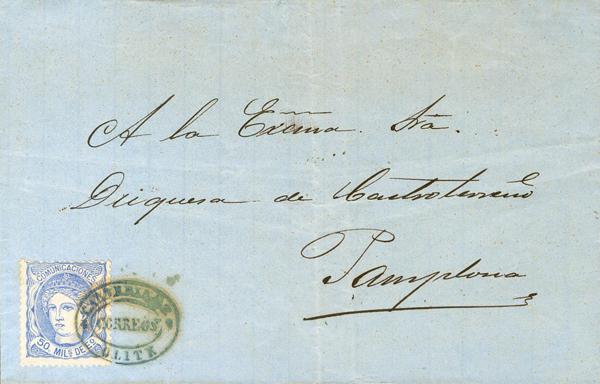 A la Exc̃ma. Sra.
Duquesa de Castroterreño
Pamplona
COMUNICACIONES
50 MILS DE Eº
CORREOS
OLITE